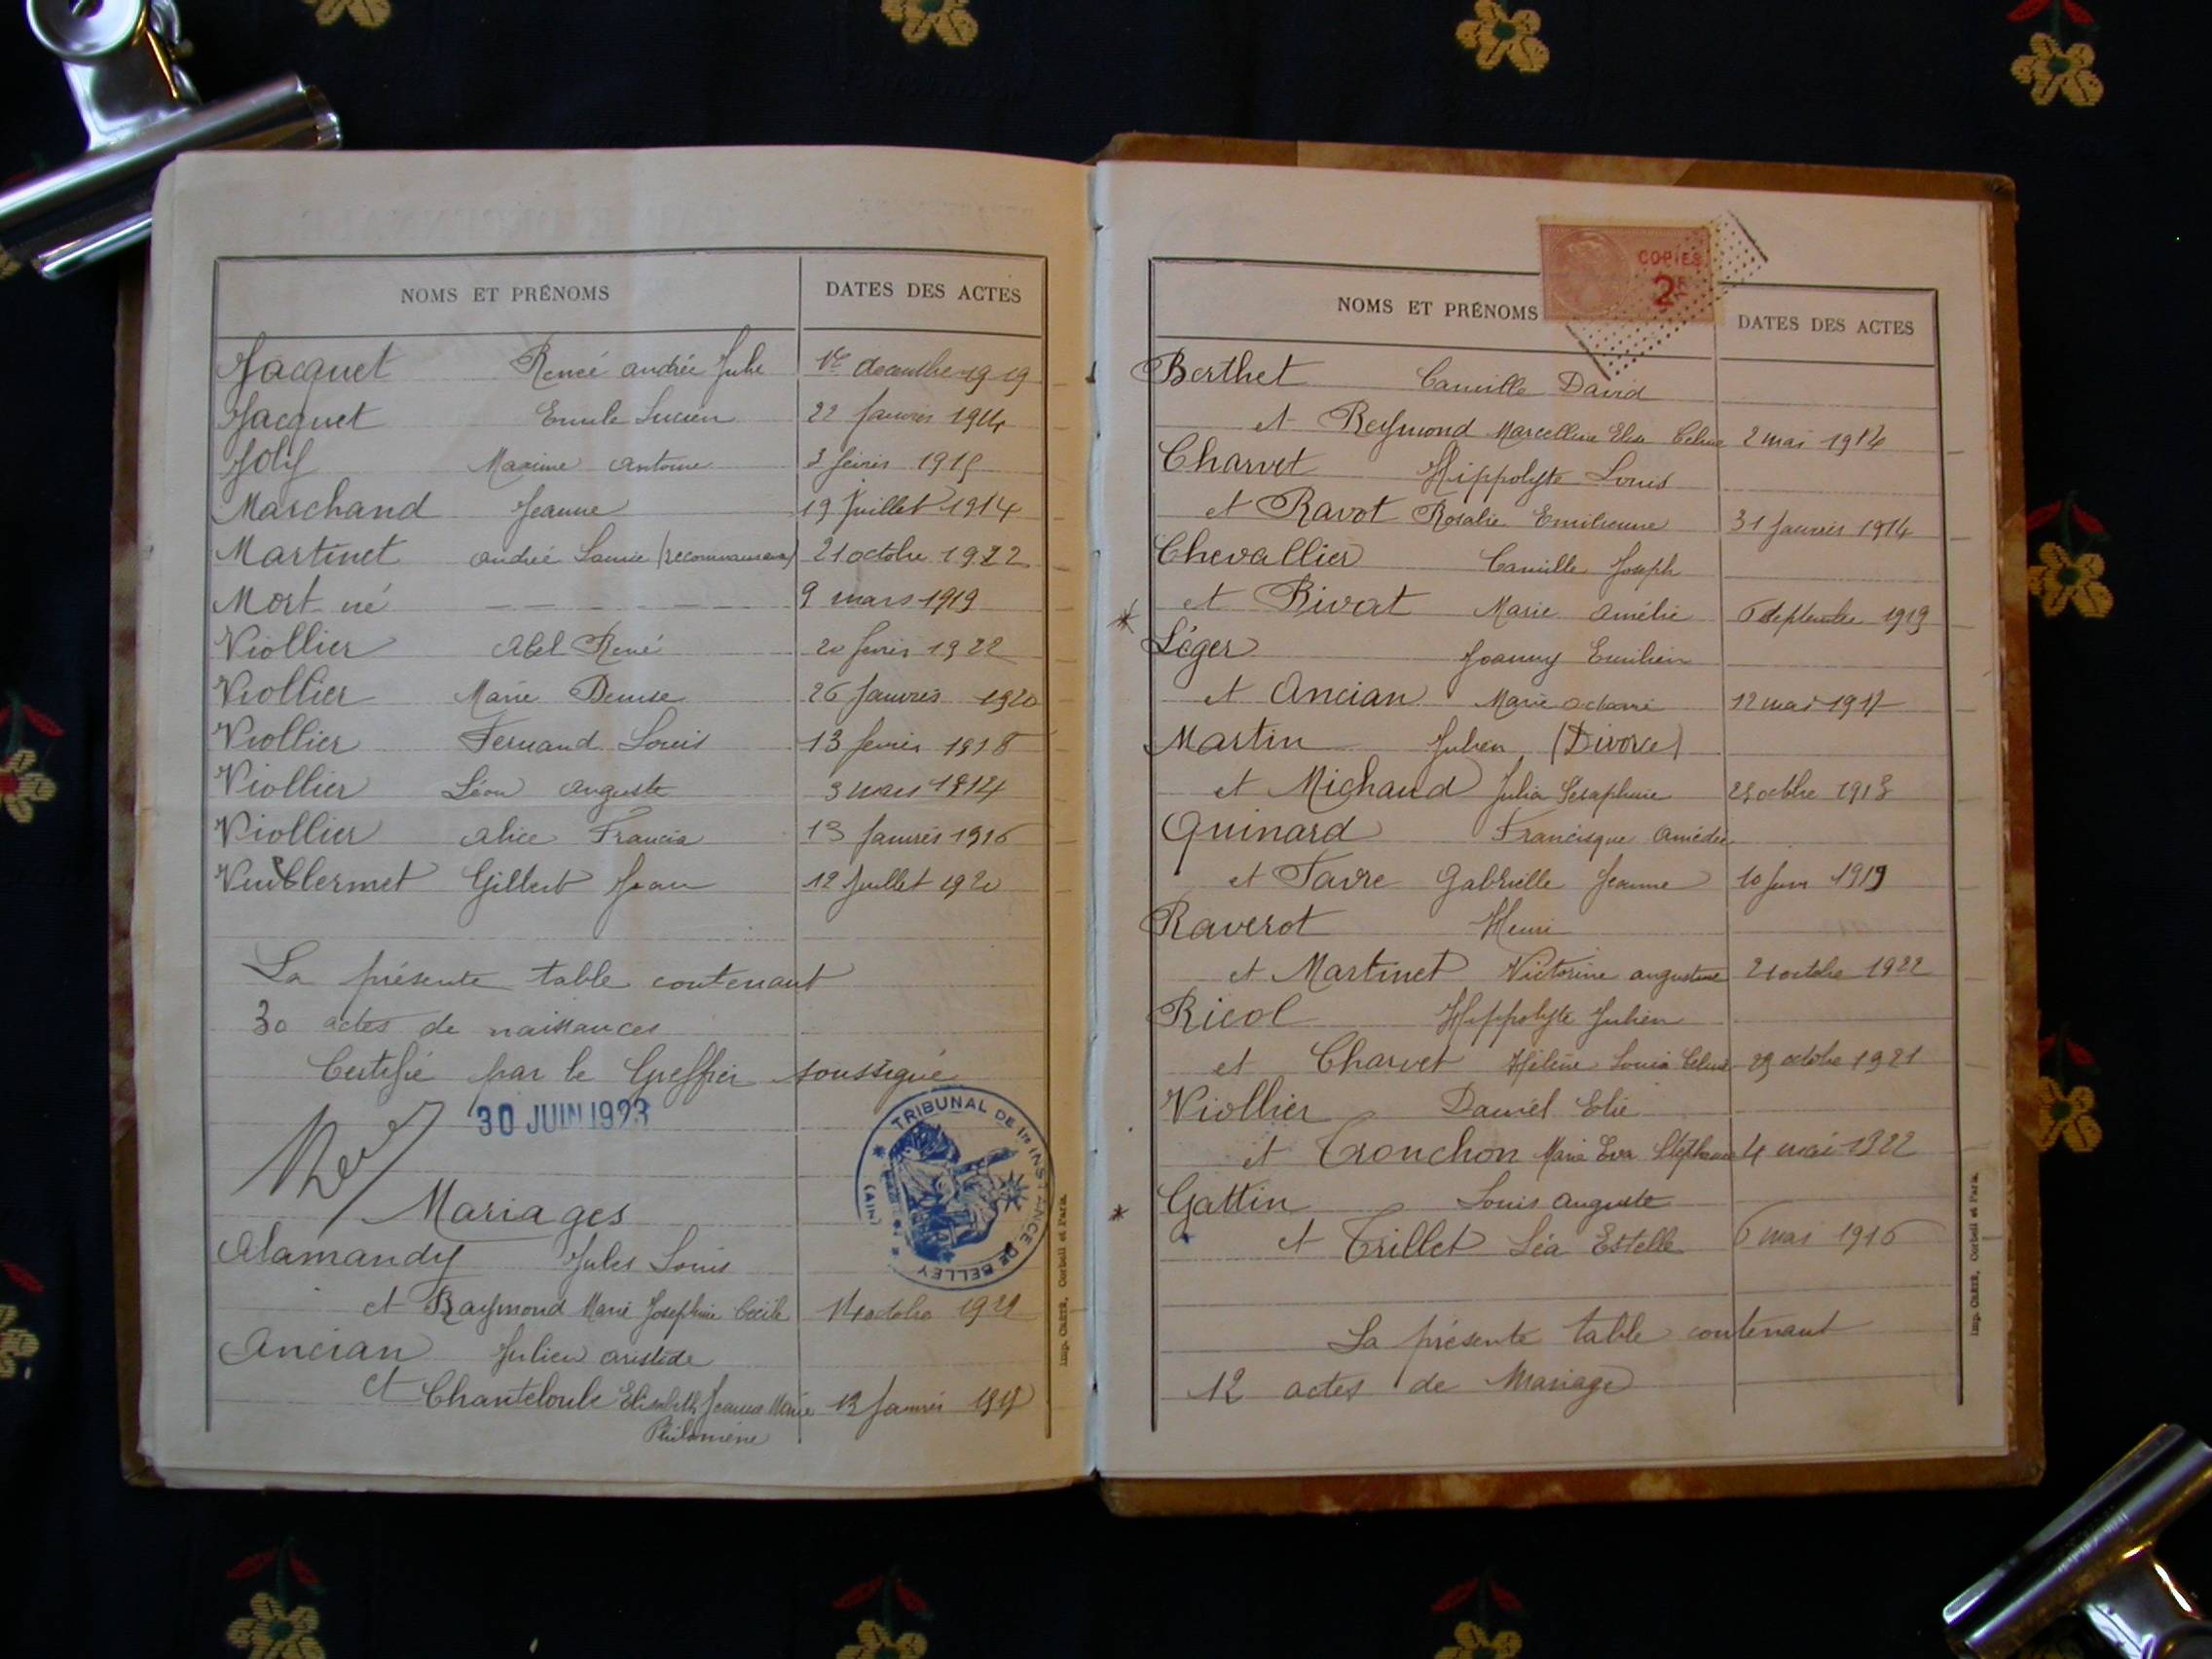 NOMS ET PRÉNOMS DATES DES ACTES
Jacquet Renée andrée Julie 1er decembre 1919
Jacquet Emile Lucien 22 Janvier 1914
Joly Maxime Antoine 3 février 1915
Marchand Jeanne 19 Juillet 1914
Martinet andrée Louise (reconnaissance) 21 octobre 1922
Mort né 9 mars 1919
Viollier Abel René 20 fevrier 1922
Viollier Marie Denise 26 Janvier 1920
Viollier Fernand Louis 13 fevrier 1918
Viollier Léon auguste 3 mars 1914
Viollier alice Francia 13 Janvier 1916
Vuillermet Gilbert Jean 12 Juillet 1920
La présente table contenant
30 actes de naissances
Certifié par le Greffier soussigné
30 JUIN 1923
TRIBUNAL DE 1re INSTANCE DE BELLEY
(AIN)
Mariages
Alamandy Jules Louis
et Raymond Marie Josephine Cécile 14 octobre 1921
Ancian Julien aristide
et Chanteloube Elisabeth Jeanne Marie 13 Janvier
Philomène
Imp. Corbeil et Paris.
COPIES
2F
NOMS ET PRÉNOMS DATES DES ACTES
Berthet Camille David
et Reymond Marcelline Elisa Celine 2 mai 1914
Charvet Hippolyte Louis
et Ravot Rosalie Emilienne 31 Janvier 1914
Chevallier Camille Joseph
et Rivat Marie Amélie 6 septembre 1919
Léger Joanny Emilien
et Ancian Marie octavie 12 mai
Martin Julien (Divorce)
et Michaud Julia Séraphine octobre 1918
Quinard Francisque Amédée
et Favre Gabrielle Jeanne 10 Juin 1919
Raverot Henri
et Martinet Victorine augustine 21 octobre 1922
Ricol Hippolyte Julien
et Charvet Hélène Louisa Celine 29 octobre 1921
Viollier Daniel Elie
et Tronchon Marie Eva Stéphanie 4 mai 1922
Gattin Louis Auguste
et Trillet Léa Estelle 6 mai 1916
La présente table contenant
12 actes de Mariage
Imp. Corbeil et Paris.